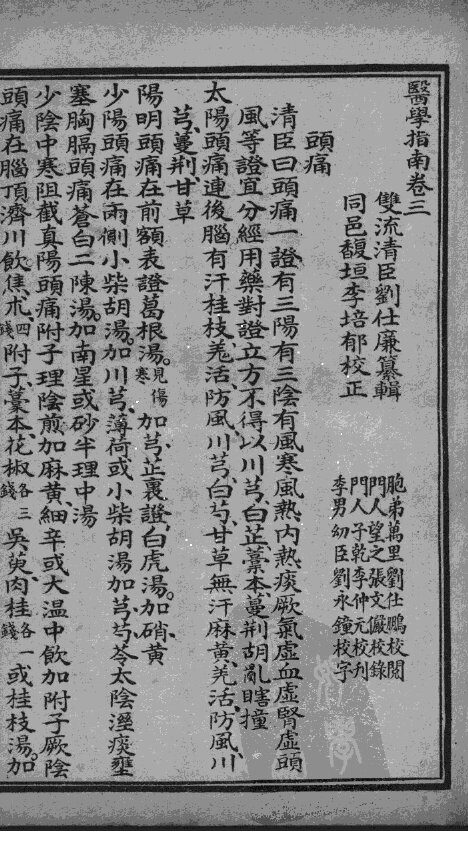 醫學指南卷三
雙流清臣劉仕廉纂輯
同邑馥垣李培郁校正
胞弟萬里劉仕鵬校閱
門人望之張文儼校錄
門人子乾李仲元校刋
李男幼臣劉永鐘校字
頭痛
清臣曰頭痛一證有三陽有三陰有風寒風熱內熱痰厥氣虛血虛腎虛頭
風等證宜分經用藥對證立方不得以川芎白芷藁本蔓荊胡亂瞎撞
太陽頭痛連後腦有汗桂枝羌活防風川芎白芍甘草無汗麻黃羌活防風川
芎蔓荊甘草
陽明頭痛在前額表證葛根湯見傷寒加芎芷裏證白虎湯加硝黄
少陽頭痛在兩側小柴胡湯加川芎薄荷或小柴胡湯加芎芍苓太陰溼痰壅
塞胸膈頭痛蒼白二陳湯加南星或砂半理中湯
少陰中寒阻截真陽頭痛附子理陰煎加麻黄細辛或大温中飲加附子厥陰
頭痛在腦頂濟川飲焦朮四錢附子藁本花椒各三錢吳萸肉桂各一錢或桂枝湯加